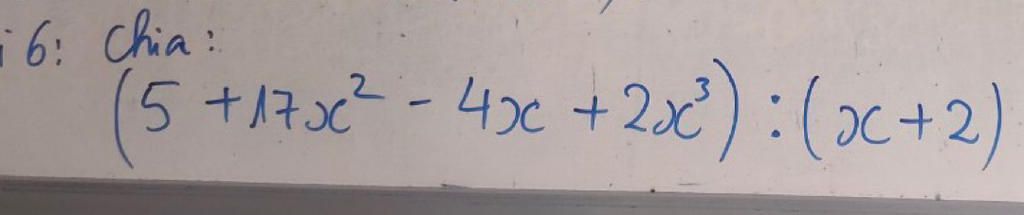 i 6: Chia:
(5 + 17x² - 4x + 2x³) : (x + 2)